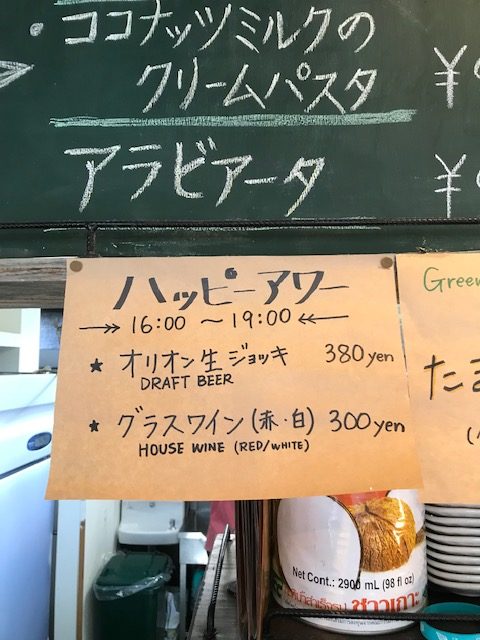 ・ココナッツミルクの
クリームパスタ ¥
アラビアータ ¥
ハッピーアワー
16:00 ～ 19:00
★ オリオン生ジョッキ 380yen
DRAFT BEER
★ グラスワイン(赤・白) 300yen
HOUSE WINE (RED/WHITE)
Green
たま
Net Cont.: 2900 mL (98 fl oz)
ชาวเกาะ